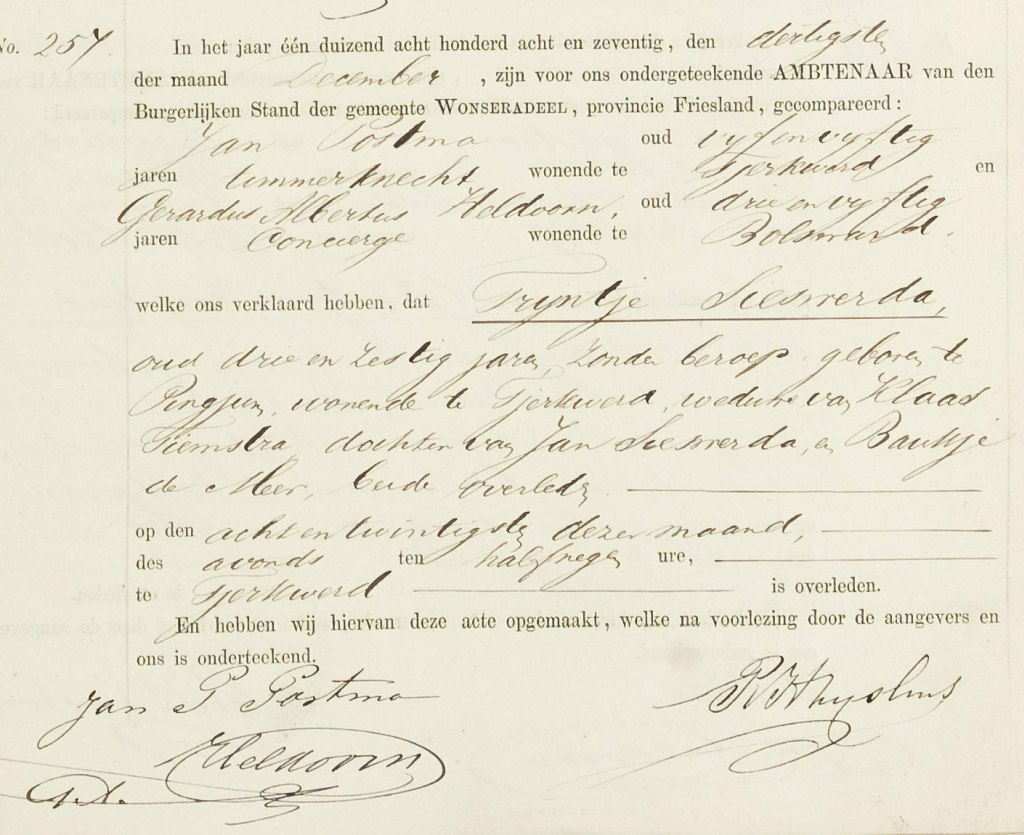 No. 257.
In het jaar één duizend acht honderd acht en zeventig, den dertigsten
der maand December, zijn voor ons ondergeteekende AMBTENAAR van den
Burgerlijken Stand der gemeente WONSERADEEL, provincie Friesland, gecompareerd:
Jan Postma oud vyf en vyftig
jaren timmerknecht wonende te Tjerkwerd en
Gerardus Albertus Heldoorn, oud drie en vyftig
jaren Concierge wonende te Bolsward.
welke ons verklaard hebben, dat Tryntje Sieswerda,
oud drie en zestig jaren, zonder beroep, geboren te
Pingjum, wonende te Tjerkwerd, weduwe van Klaas
Tiemstra, dochter van Jan Sieswerda, en Baukje
de Meer, beide overleden
op den acht en twintigsten dezer maand,
des avonds ten half negen ure,
te Tjerkwerd is overleden.
En hebben wij hiervan deze acte opgemaakt, welke na voorlezing door de aangevers en
ons is onderteekend.
Jan P Postma
G. A. Heldoorn